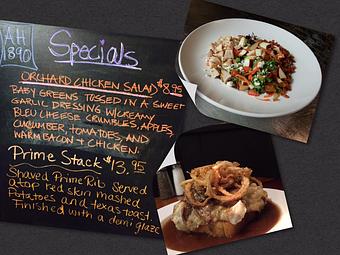 AH
1890
Specials
ORCHARD CHICKEN SALAD $8.95
BABY GREENS TOSSED IN A SWEET
GARLIC DRESSING W/CREAMY
BLEU CHEESE CRUMBLES, APPLES,
CUCUMBER, TOMATOES, AND
WARM BACON & CHICKEN.
Prime Stack $13.95
Shaved Prime Rib Served
atop red skin mashed
Potatoes and texas toast.
Finished with a demi glaze